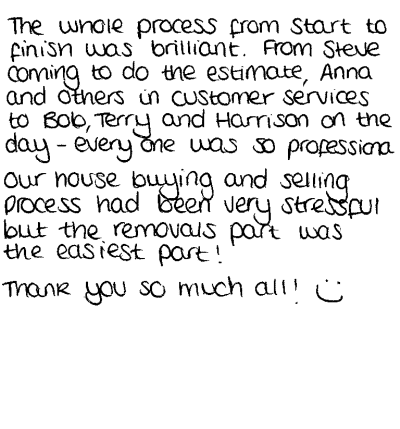 The whole process from start to
finish was brilliant. From Steve
coming to do the estimate, Anna
and others in customer services
to Bob, Terry and Harrison on the
day - every one was so professiona
our house buying and selling
process had been very stressful
but the removals part was
the easiest part!
Thank you so much all! :)